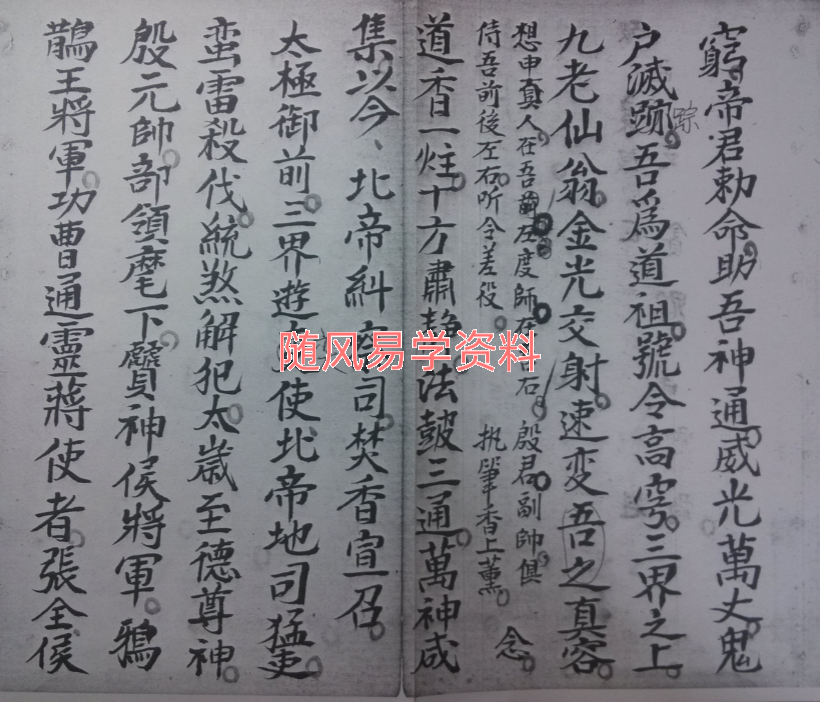 窮帝君勅命助吾神通威光萬丈鬼
户滅跡踪吾爲道祖號令高穹三界之上
九老仙翁金光交射速変吾之真容
想申真人在吾前左度師在吾右殷君副帥俱
侍吾前後左右听令差役 执筆香上薰 念
道香一炷十方肅静法皷三通萬神咸
集以今、北帝糾察司焚香宣召
太極御前三界遊使北帝地司猛吏
蛮雷殺伐統煞解犯太歲至德尊神
殷元帥部領麾下鬢神侯將軍鴉
鵲王將軍功曹通靈蒋使者張全侯
随风易学资料